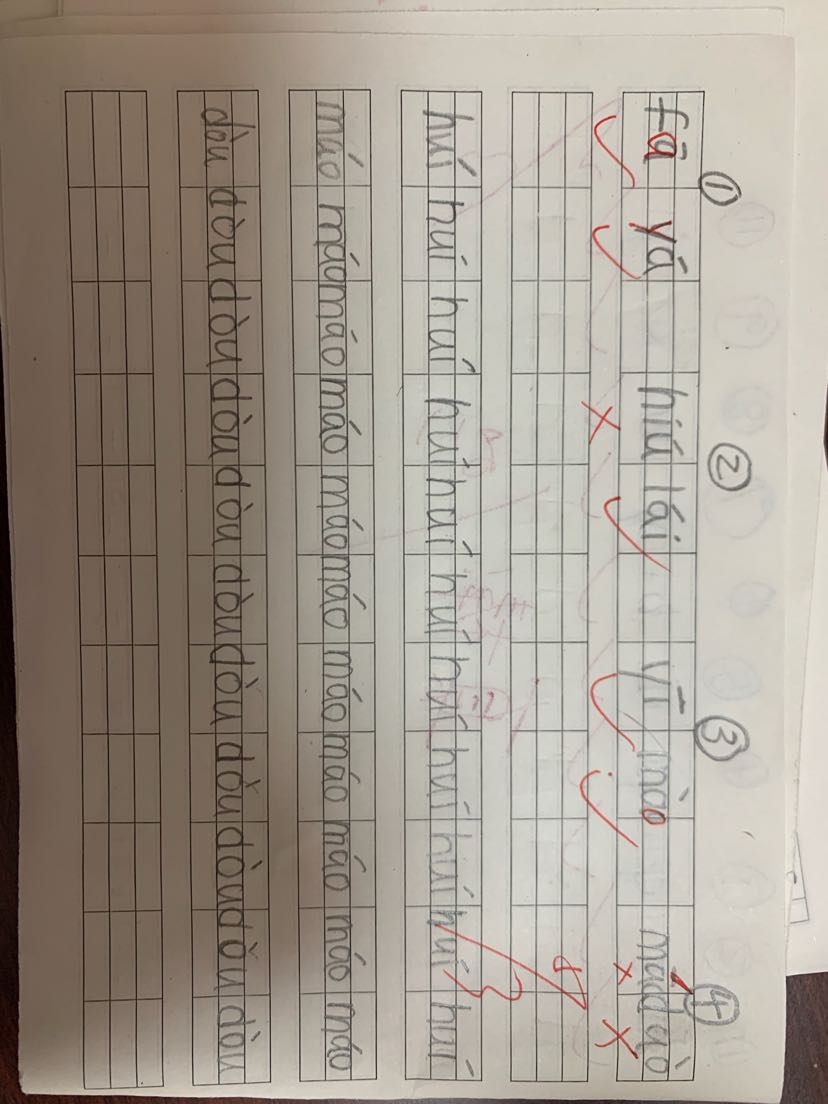 ① ② ③ ④
fā yá hiú lái yī mào máo dào
huí huí huí huí huí huí huí huí huí huí huí
máo máo máo máo máo máo máo máo máo máo máo
dòu dòu dòu dòu dòu dòu dòu dòu dòu dòu dòu